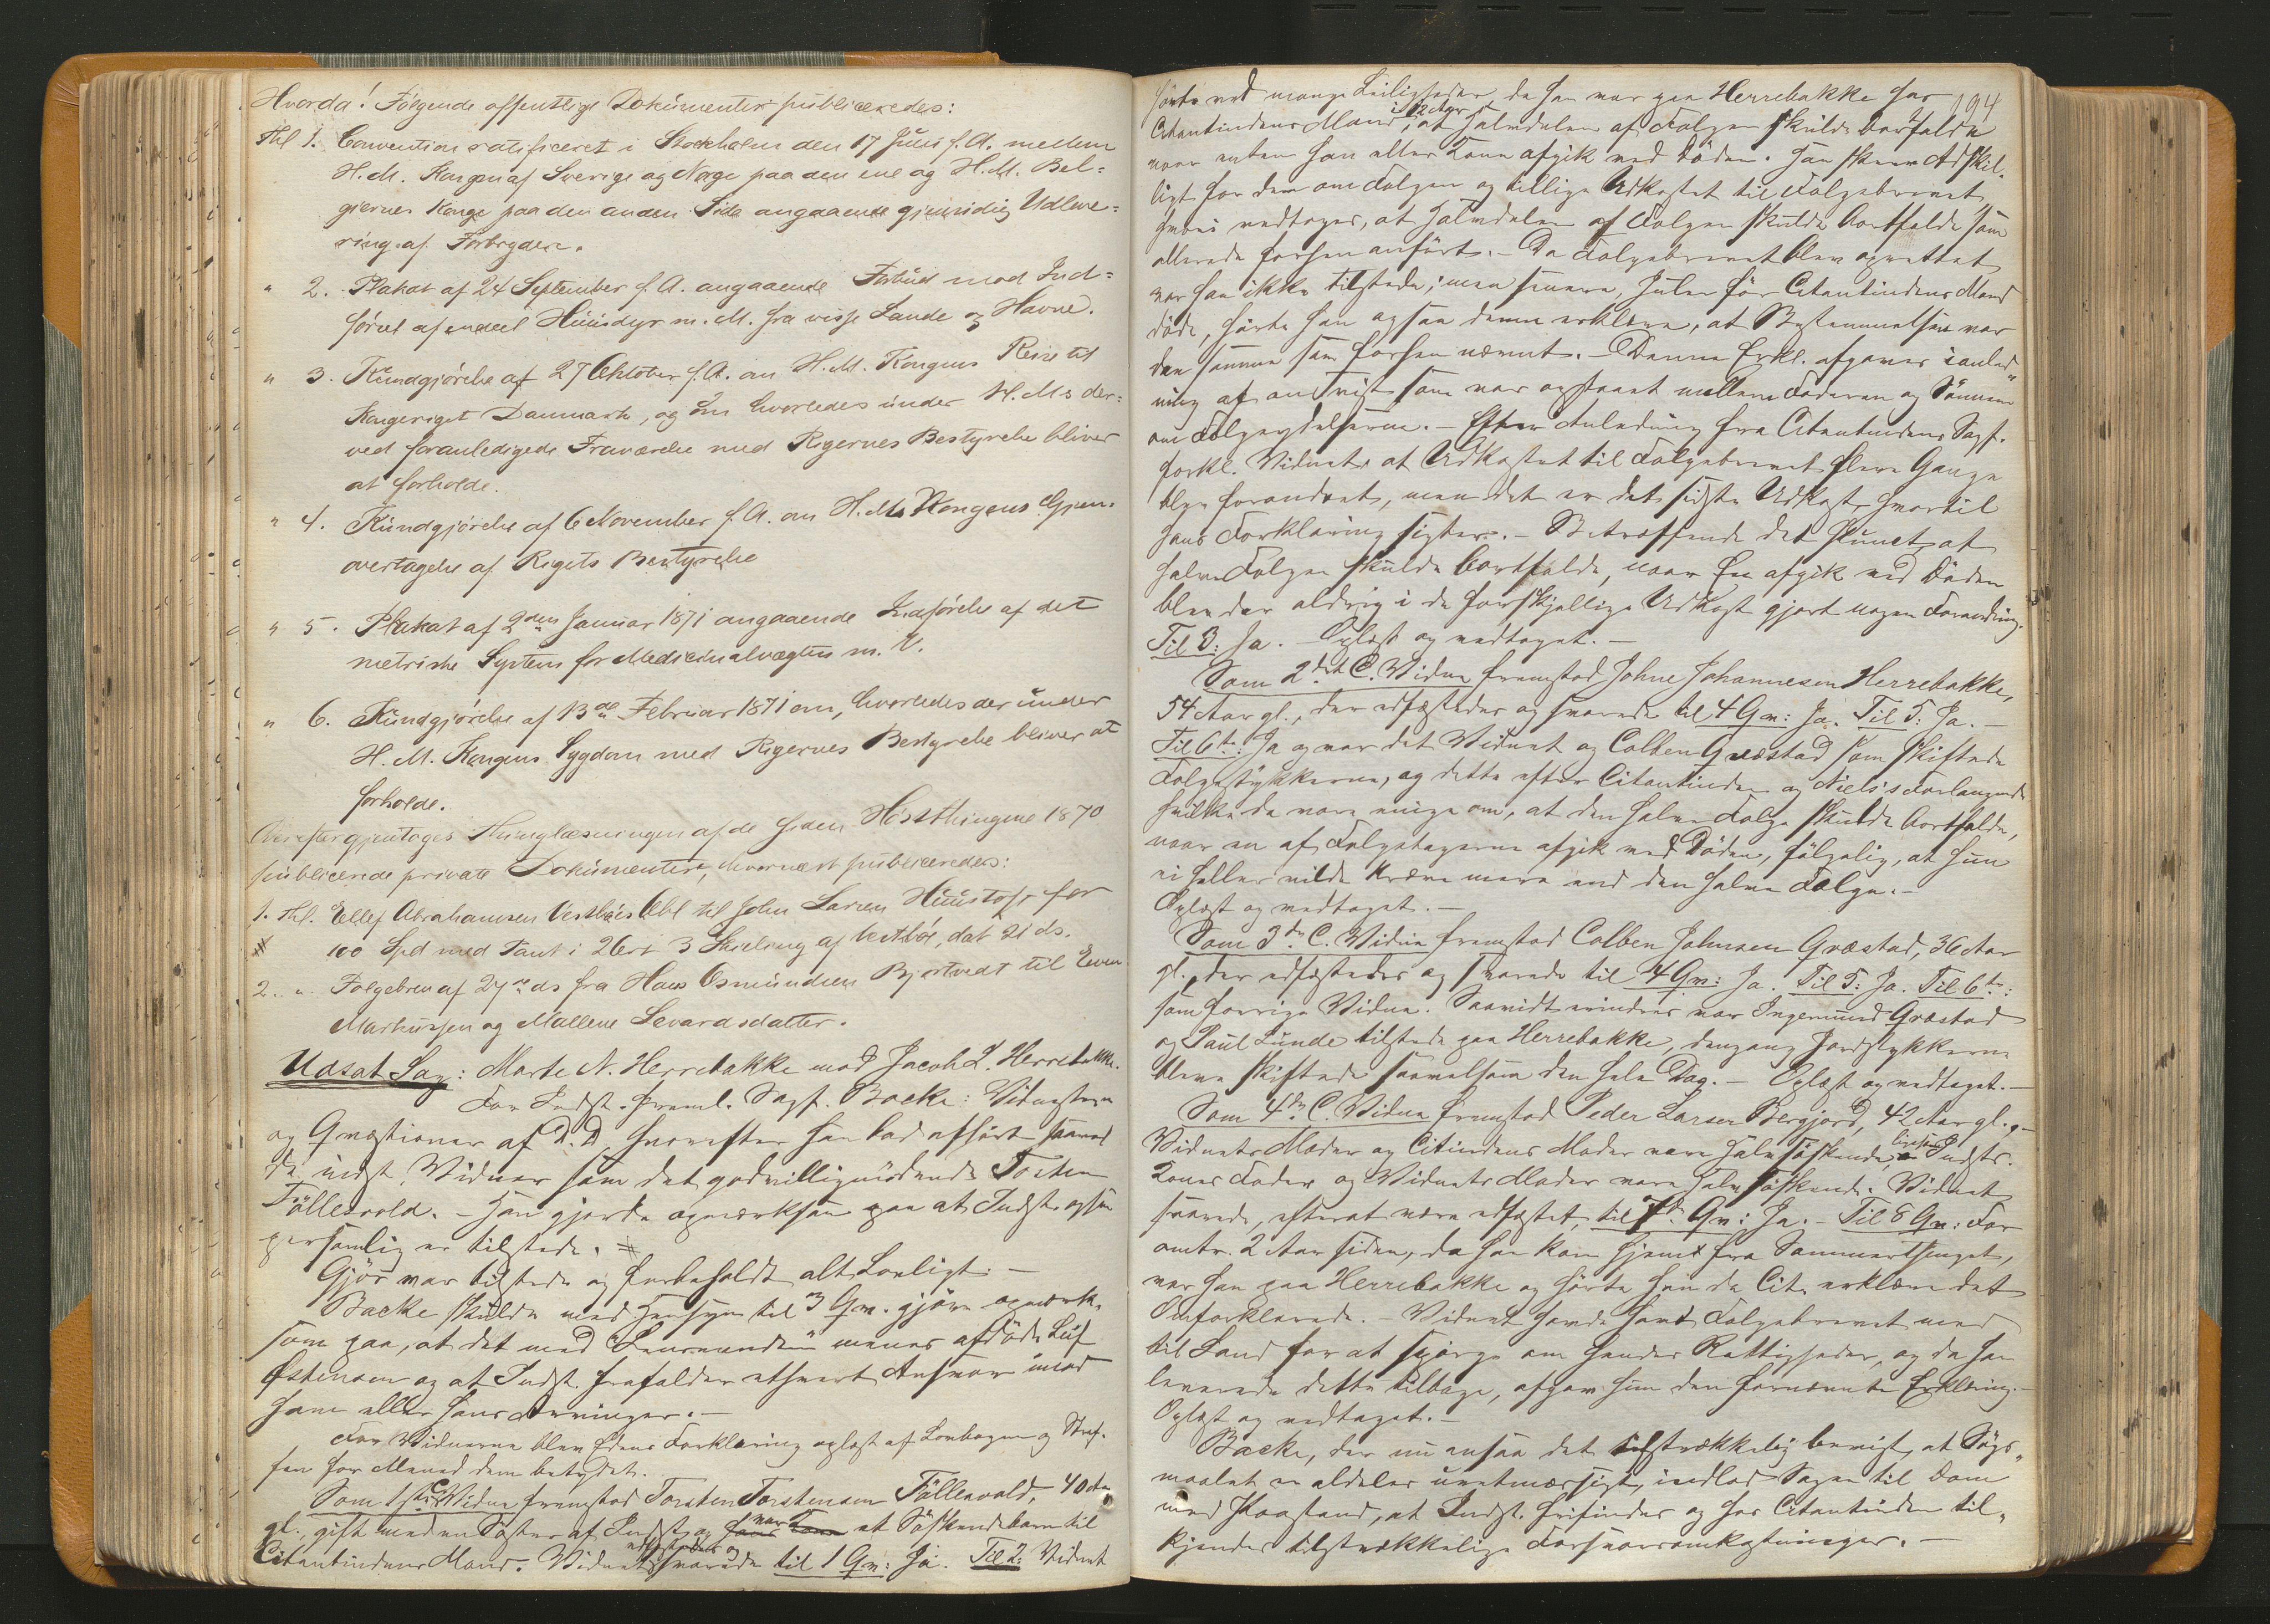 Hvorda! Følgende offentlige Dokumenter publiceredes:
Thl 1. Convention ratificeret i Stockholm den 17 Juni f. A. mellem
H. M. Kongen af Sverige og Norge paa den ene og H. M. Bel=
giernes Konge paa den anden Side angaaende gjensidig Udleve=
ring af Forbrydere.
" 2. Plakat af 24 September f. A. angaaende Forbud mod Ind=
førsel af endeel Huusdyr m. M. fra visse Lande og Havne.
" 3. Kundgjørelse af 27 Oktober f. A. om H. M. Kongens Reise til
Kongeriget Danmark, og om hvorledes under H. Ms der=
ved foranledigede Fraværelse med Rigernes Bestyrelse bliver
at forholde.
" 4. Kundgjørelse af 6 November f. A. om H. Ms Kongens Gjen-
overtagelse af Rigets Bestyrelse
" 5. Plakat af 2den Januar 1871 angaaende Indførelse af det
metriske System for Medicinalvægten m. V.
" 6. Kundgjørelse af 13de Februar 1871 om, hvorledes der under
H. M. Kongens Sygdom med Rigernes Bestyrelse bliver at
forholde.
Derefter gjentoges Thinglæsningen af de siden Høstthingene 1870
publicerede private Dokumenter, hvornæst publiceredes:
1. Thl. Ellef Abrahamsen Vestbøes Obl til John Larsen Huustoft for
# 100 Spd med Pant i 26 rt 3 Skieling af Vestbø, dat 21 ds.
2. " Følgebrev af 27de ds fra Hans Osmundsen Bjortvedt til Even
Markussen og Mallene Sevardsdatter.
Udsat Sag: Marte N. Herrebakke mod Jacob L. Herrebakke.
For Indst. freml. Sagf. Backe: Vidnestevn
og Qvæstioner af D. D. hvorefter han bad afhørt saavel
de indst. Vidner som det godvilligmødende Tosten
Föllesvold. – Han gjorde opmærksom paa at Indst. ogsaa
personlig er tilstede. #
Gjör var tilstede og forbeholdt alt Lovligt. –
Backe skulde med Hensyn til 3 Qv. gjøre opmærk-
som paa, at det med "Lensmanden" menes afdöde Leuf
Østensen og at Indst. frafalder ethvert Ansvar imod
ham eller hans Arvinger. –
For Vidnerne blev Edens Forklaring oplæst af Lovbogen og Straf-
fen for Meened dem betydet.
Som 1ste C. Vidne fremstod Torsten Torstensen Föllesvold, 40 Aar
gl., gift med en Söster af Indst. og var et Söskendebarn til
Citantindens Mand. Vidnet edfæstedes og svarede til 1 Qv: Ja. Til 2: Vidnet
194
hørte ved mange Leiligheder da han var paa Herrebakke hos
Citantindens Mand, at Halvdelen af Folgen skulde bortfalde
naar enten han eller Kone afgik ved Döden. Han skrev Adskil-
ligt for dem om Folgen og tillige Udkastet til Folgebrevet
hvori vedtoges, at Halvdelen af Folgen skulde bortfalde som
allerede forhen anført. – Da Folgebrevet blev oprettet
var han ikke tilstede; men senere, Julen för Citantindens Mand
döde, hørte han ogsaa denne erklære, at Bestemmelsen var
den samme som forhen nævnt. – Denne Erkl. afgaves i anled-
ning af en Tvist som var opstaaet mellem Faderen og Sönnen
om Folgeydelserne. – Efter Anledning fra Citantindens Sagf.
forkl. Vidnet, at Udkastet til Folgebrevet flere Gange
blev forandret, men det er det sidste Udkast, hvortil
hans Forklaring sigter. – Betræffende det Punct, at
halve Folgen skulde bortfalde, naar En afgik ved Döden
blev der aldrig i de forskjellige Udkast gjort nogen Forandring.
Til 3: Ja. Oplæst og vedtaget. –
Som 2det C. Vidne fremstod Johne Johannesen Herrebakke,
54 Aar gl., der edfæstedes og svarede til 4 Qv: Ja. Til 5: Ja. –
Til 6te: Ja og var det Vidnet og Colben Qvæstad som skiftede
Folgestykkerne, og dette efter Citantinden og Niels's Forlangende
hvilke da vare enige om, at den halve Folge skulde bortfalde,
naar en af Folgetagerne afgik ved Döden, fölgelig, at hun
ei heller vilde kræve mere end den halve Folge. –
Oplæst og vedtaget. –
Som 3de C. Vidne fremstod Colben Johnsen Qvæstad, 36 Aar
gl., der edfæstedes og svarede til 4 Qv: Ja. Til 5: Ja. Til 6te:
som forrige Vidne. Saavidt erindres var Ingemund Qvæstad
og Paul Lunde tilstede paa Herrebakke, dengang Jordstykkerne
bleve skiftede saavelsom den hele Dag. – Oplæst og vedtaget. –
Som 4de C. Vidne fremstod Peder Larsen Bergjord, 42 Aar gl., –
Vidnets Moder og Citindens Moder vare Halvsöskende, Indsts.
Kones Fader og Vidnets Moder vare Halvsöskende. Vidnet
svarede, efterat være edfæstet, til 7de Qv: Ja. – Til 8 Qv: For
omtr. 2 Aar siden, da han kom hjem fra Sommerthinget,
var han paa Herrebakke og hørte han da Cit. erklære det
Omforklarede. – Vidnet havde havt Folgebrevet med
til Land for at spørge om hendes Rettigheder, og da han
leverede dette tilbage, afgav hun den fornævnte Erklæring. –
Oplæst og vedtaget. –
Backe, der nu ansaa det tilstrækkelig bevist, at Søgs-
maalet er aldeles uretmæssigt, indlod Sagen til Dom
med Paastand, at Indst. frifindes og hos Citantinden til-
kjendes tilstrækkelige Forsvarsomkostninger. –